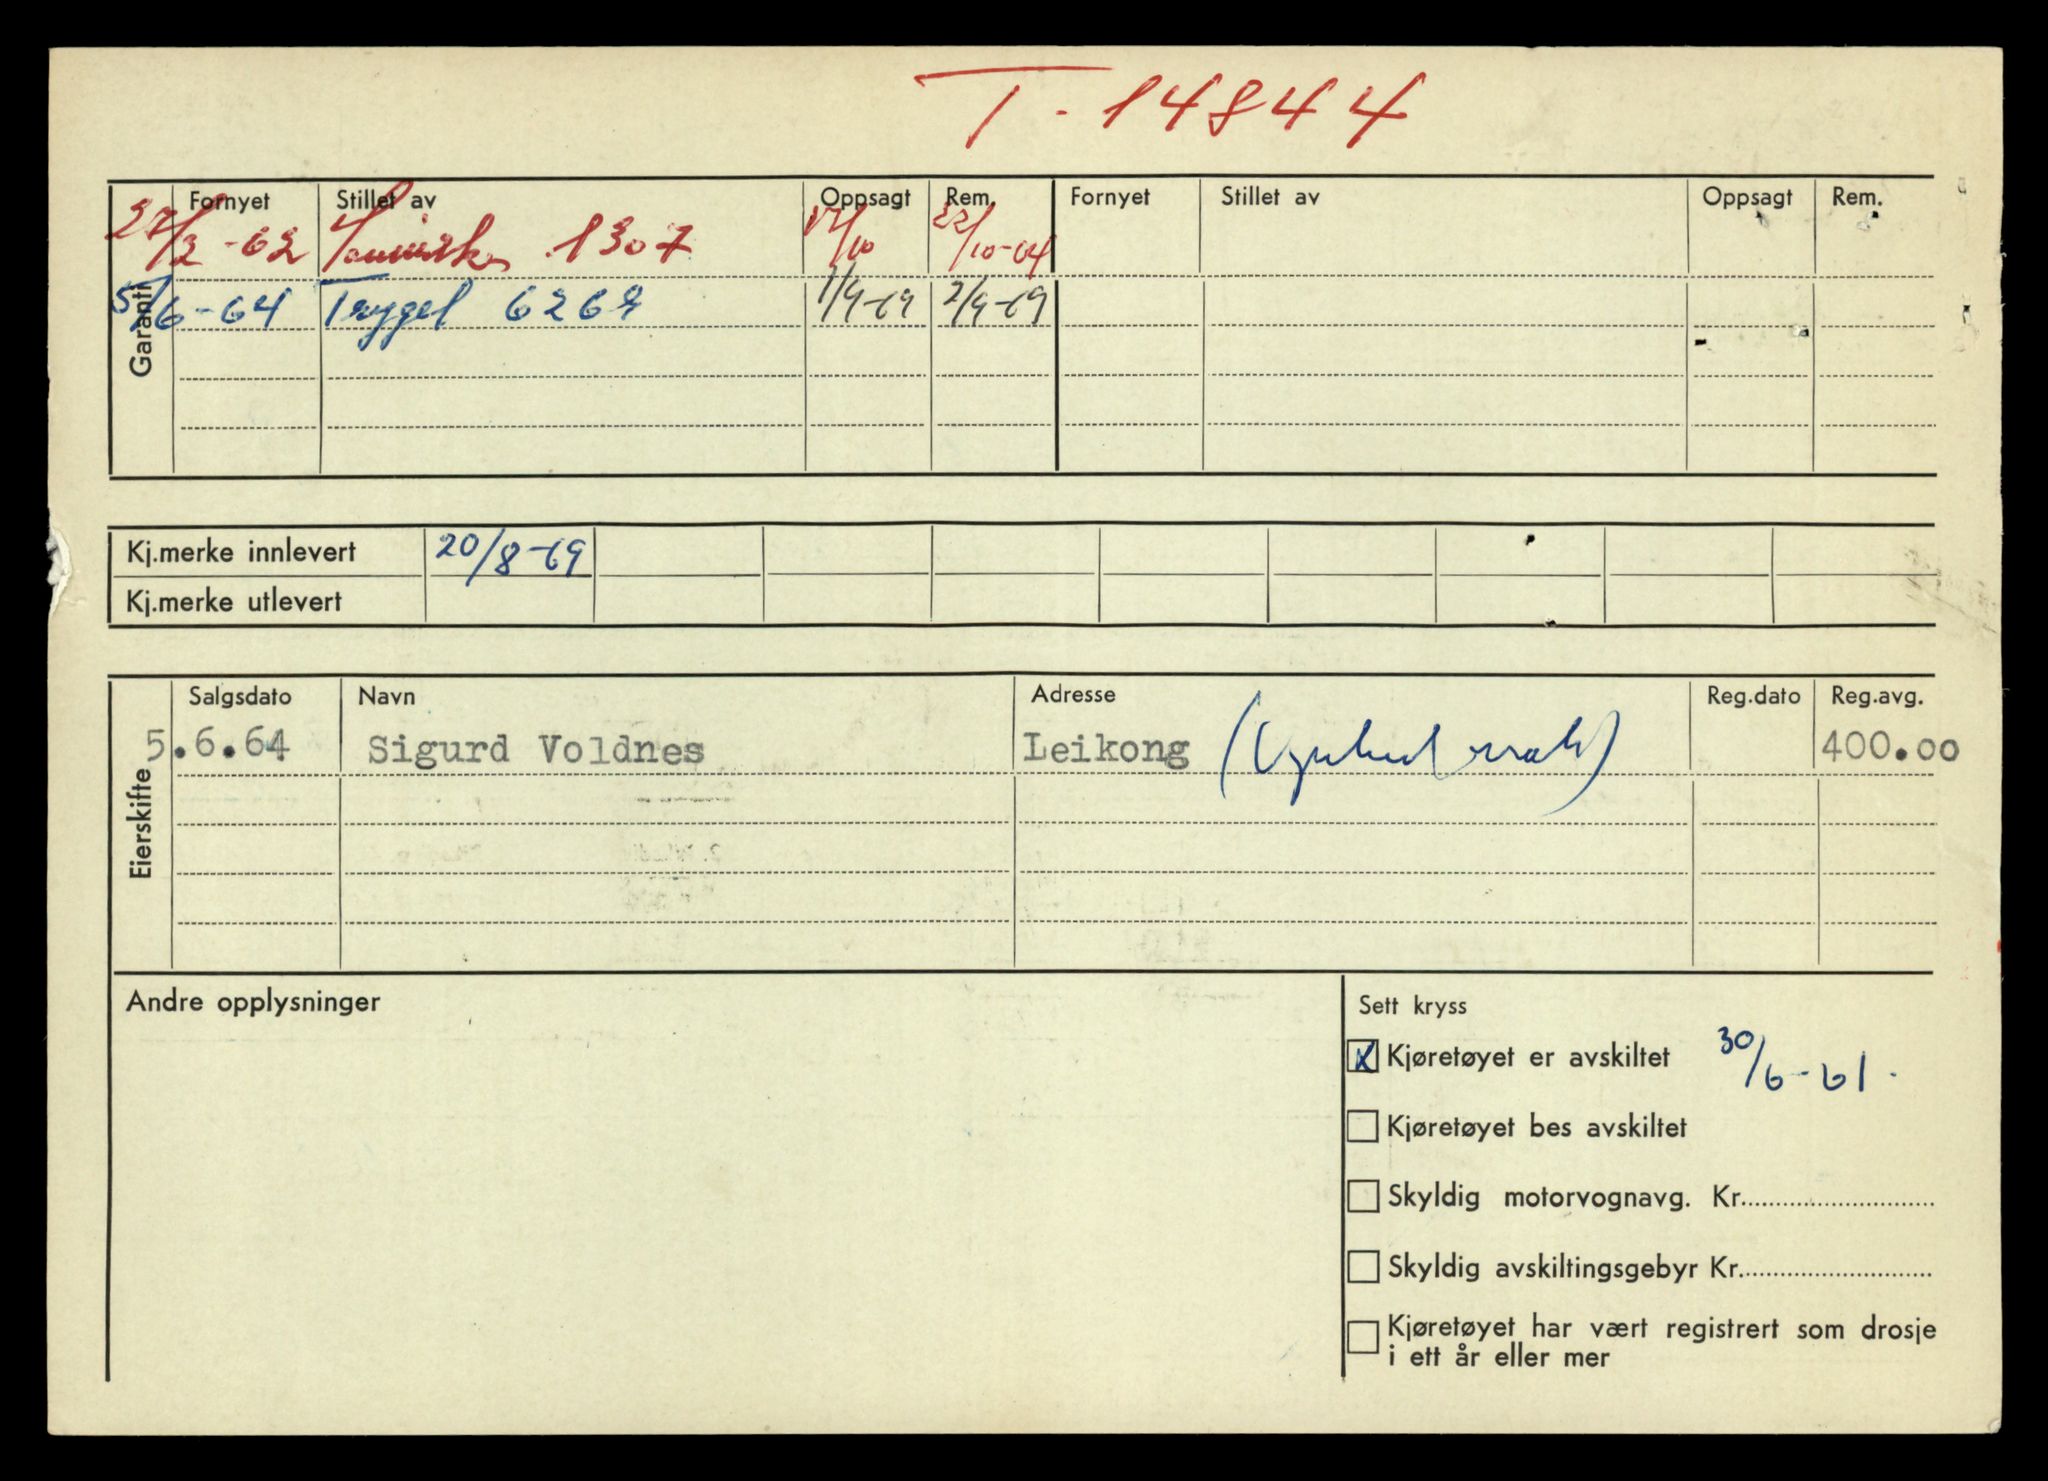 T-14844
Garanti
Fornyet Stillet av Oppsagt Rem. Fornyet Stillet av Oppsagt Rem.
27/2-62 1307 17/10 22/10-64
5/6-64 Trygd 6268 1/9-69 2/9-69
Kj.merke innlevert 20/8-69
Kj.merke utlevert
Eierskifte
Salgsdato Navn Adresse Reg.dato Reg.avg.
5.6.64 Sigurd Voldnes Leikong 400.00
Andre opplysninger
Sett kryss
X Kjøretøyet er avskiltet 30/6-61.
Kjøretøyet bes avskiltet
Skyldig motorvognavg. Kr.
Skyldig avskiltingsgebyr Kr.
Kjøretøyet har vært registrert som drosje
i ett år eller mer